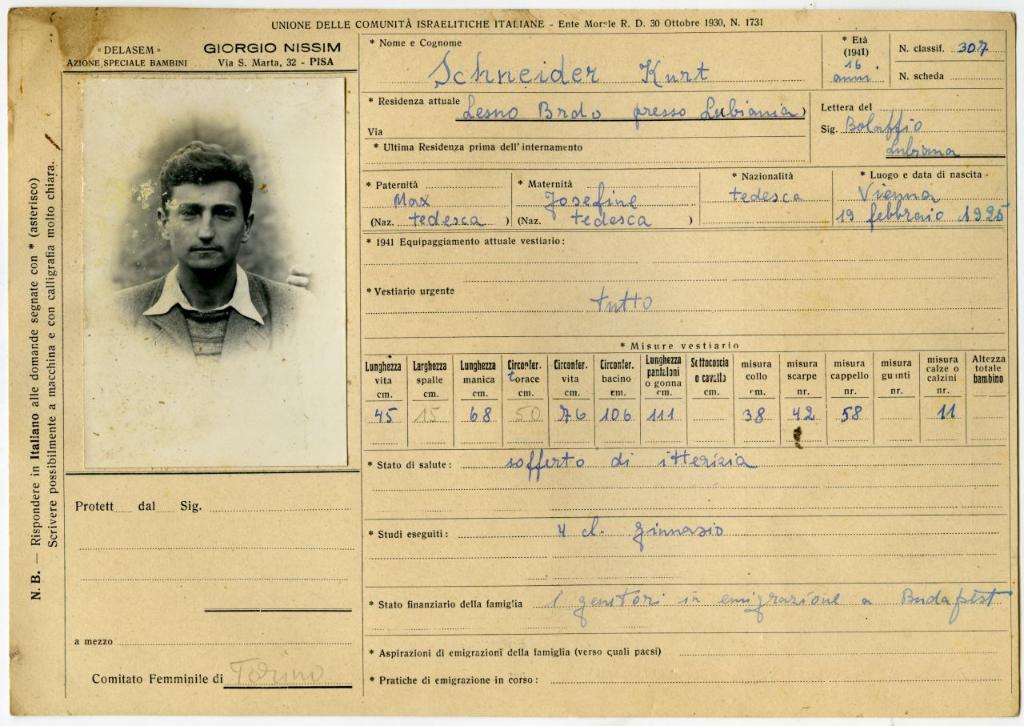 UNIONE DELLE COMUNITÀ ISRAELITICHE ITALIANE - Ente Morale R. D. 30 Ottobre 1930, N. 1731
« DELASEM »
AZIONE SPECIALE BAMBINI
GIORGIO NISSIM
Via S. Marta, 32 - PISA
* Nome e Cognome
Schneider Kurt
* Età
(1941)
16
anni
N. classif. 307
N. scheda
* Residenza attuale Lesno Brdo presso Lubiania)
Via
* Ultima Residenza prima dell'internamento
Lettera del
Sig. Bolaffio
Lubiana
* Paternità
Max
(Naz. tedesca )
* Maternità
Josefine
(Naz. tedesca )
* Nazionalità
tedesca
* Luogo e data di nascita
Vienna
19 febbraio 1925
* 1941 Equipaggiamento attuale vestiario:
* Vestiario urgente tutto
* Misure vestiario
Lunghezza vita cm. 45
Larghezza spalle cm. 15
Lunghezza manica cm. 68
Circonfer. torace cm. 50
Circonfer. vita cm. 76
Circonfer. bacino cm. 106
Lunghezza pantaloni o gonna cm. 111
Sottocoscia o cavallo cm.
misura collo cm. 38
misura scarpe nr. 42
misura cappello nr. 58
misura guanti nr.
misura calze o calzini nr. 11
Altezza totale bambino
* Stato di salute: sofferto di itterizia
* Studi eseguiti: 4 cl. ginnasio
* Stato finanziario della famiglia I genitori in emigrazione a Budapest
* Aspirazioni di emigrazioni della famiglia (verso quali paesi)
* Pratiche di emigrazione in corso:
Protett dal Sig.
a mezzo
Comitato Femminile di Torino
N. B. — Rispondere in Italiano alle domande segnate con * (asterisco)
Scrivere possibilmente a macchina e con calligrafia molto chiara.